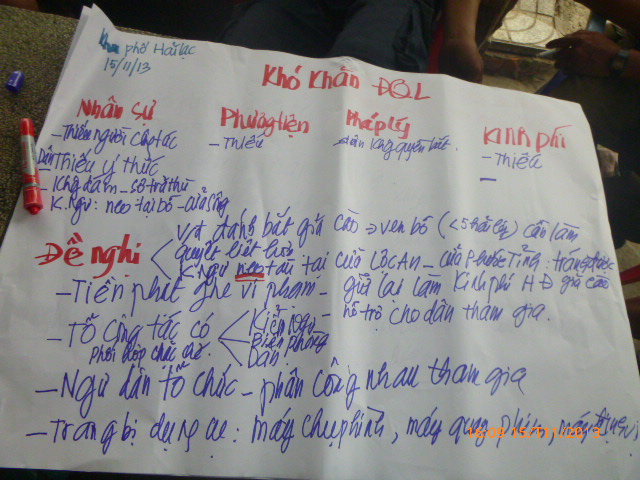 Khu phố Hải Lạc
15/11/13
Khó Khăn ĐQL
Nhân sự
Phương tiện
Pháp lý
Kinh phí
- Thiếu người công tác
- Thiếu
- dân không quyền bắt.
- Thiếu
Dân Thiếu ý thức
- Không dám - sợ trả thù
-
K. Ngư: neo tại bờ - cửa sông
Đề nghị
Vợt đánh bắt giã cào → ven bờ (<5 hải lý) cần làm
quyết liệt hơn
K. ngư neo tàu tại cửa Lộc An - cửa Phước Tỉnh:
- Tiền phạt ghe vi phạm - giữ lại làm kinh phí HĐ
hỗ trợ cho dân tham gia.
- Tổ công tác có
Kiểm ngư
Biên phòng
Dân
phối hợp chặt chẽ.
- Ngư dân tổ chức - phân công nhau tham gia
- Trang bị dụng cụ: máy chụp hình, máy quay phim, máy